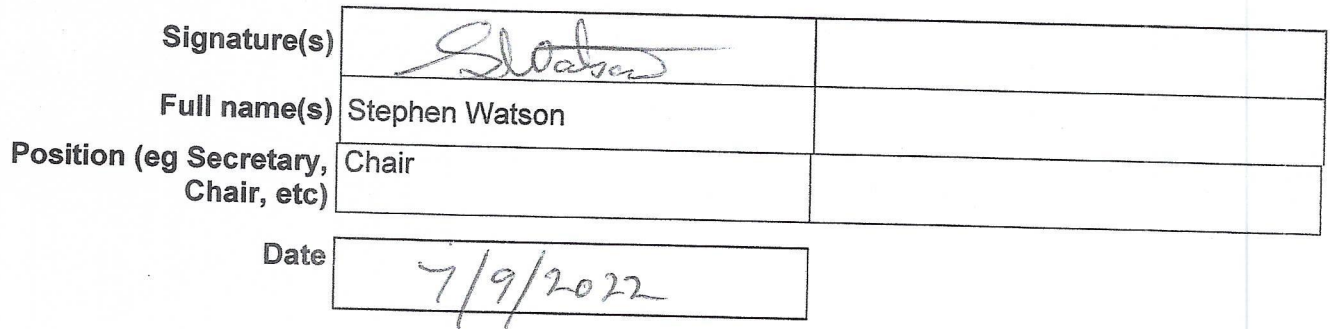 Signature(s) SWatson
Full name(s) Stephen Watson
Position (eg Secretary, Chair
Chair, etc)
Date 7/9/2022